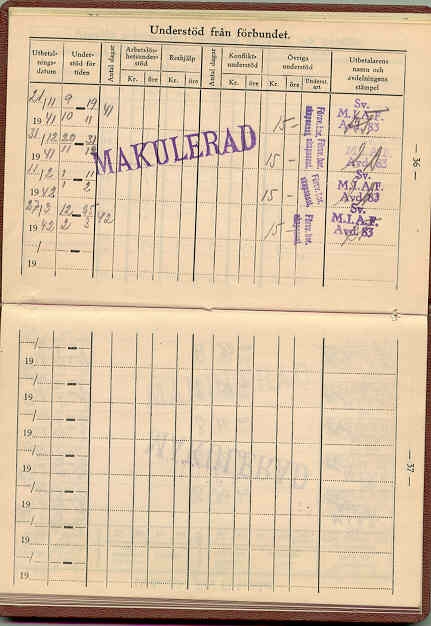 Understöd från förbundet.
Utbetal-
nings-
datum
Under-
stöd för
tiden
Antal dagar
Arbetslös-
hetsunder-
stöd
Kr. öre
Reshjälp
Kr. öre
Antal dagar
Konflikt-
understöd
Kr. öre
Övriga
understöd
Kr. öre Underst. art
Utbetalarens
namn och
avdelningens
stämpel
21/11 9 — 19
1941 10 11 41
15 —
Sv.
M.I.A.F.
Avd. 83
31/12 20 — 31
1941 11 12
MAKULERAD
15 —
Avd. 83
11/2 1 — 11
1942 1 2
15 —
Sv.
M.I.A.F.
Avd. 83
27/3 12 — 25
1942 2 3 42
15 —
Sv.
M.I.A.F.
Avd. 83
/ —
19
— 36 —
/ —
19
/ —
19
/ —
19
/ —
19
/ —
19
/ —
19
/ —
19
— 37 —